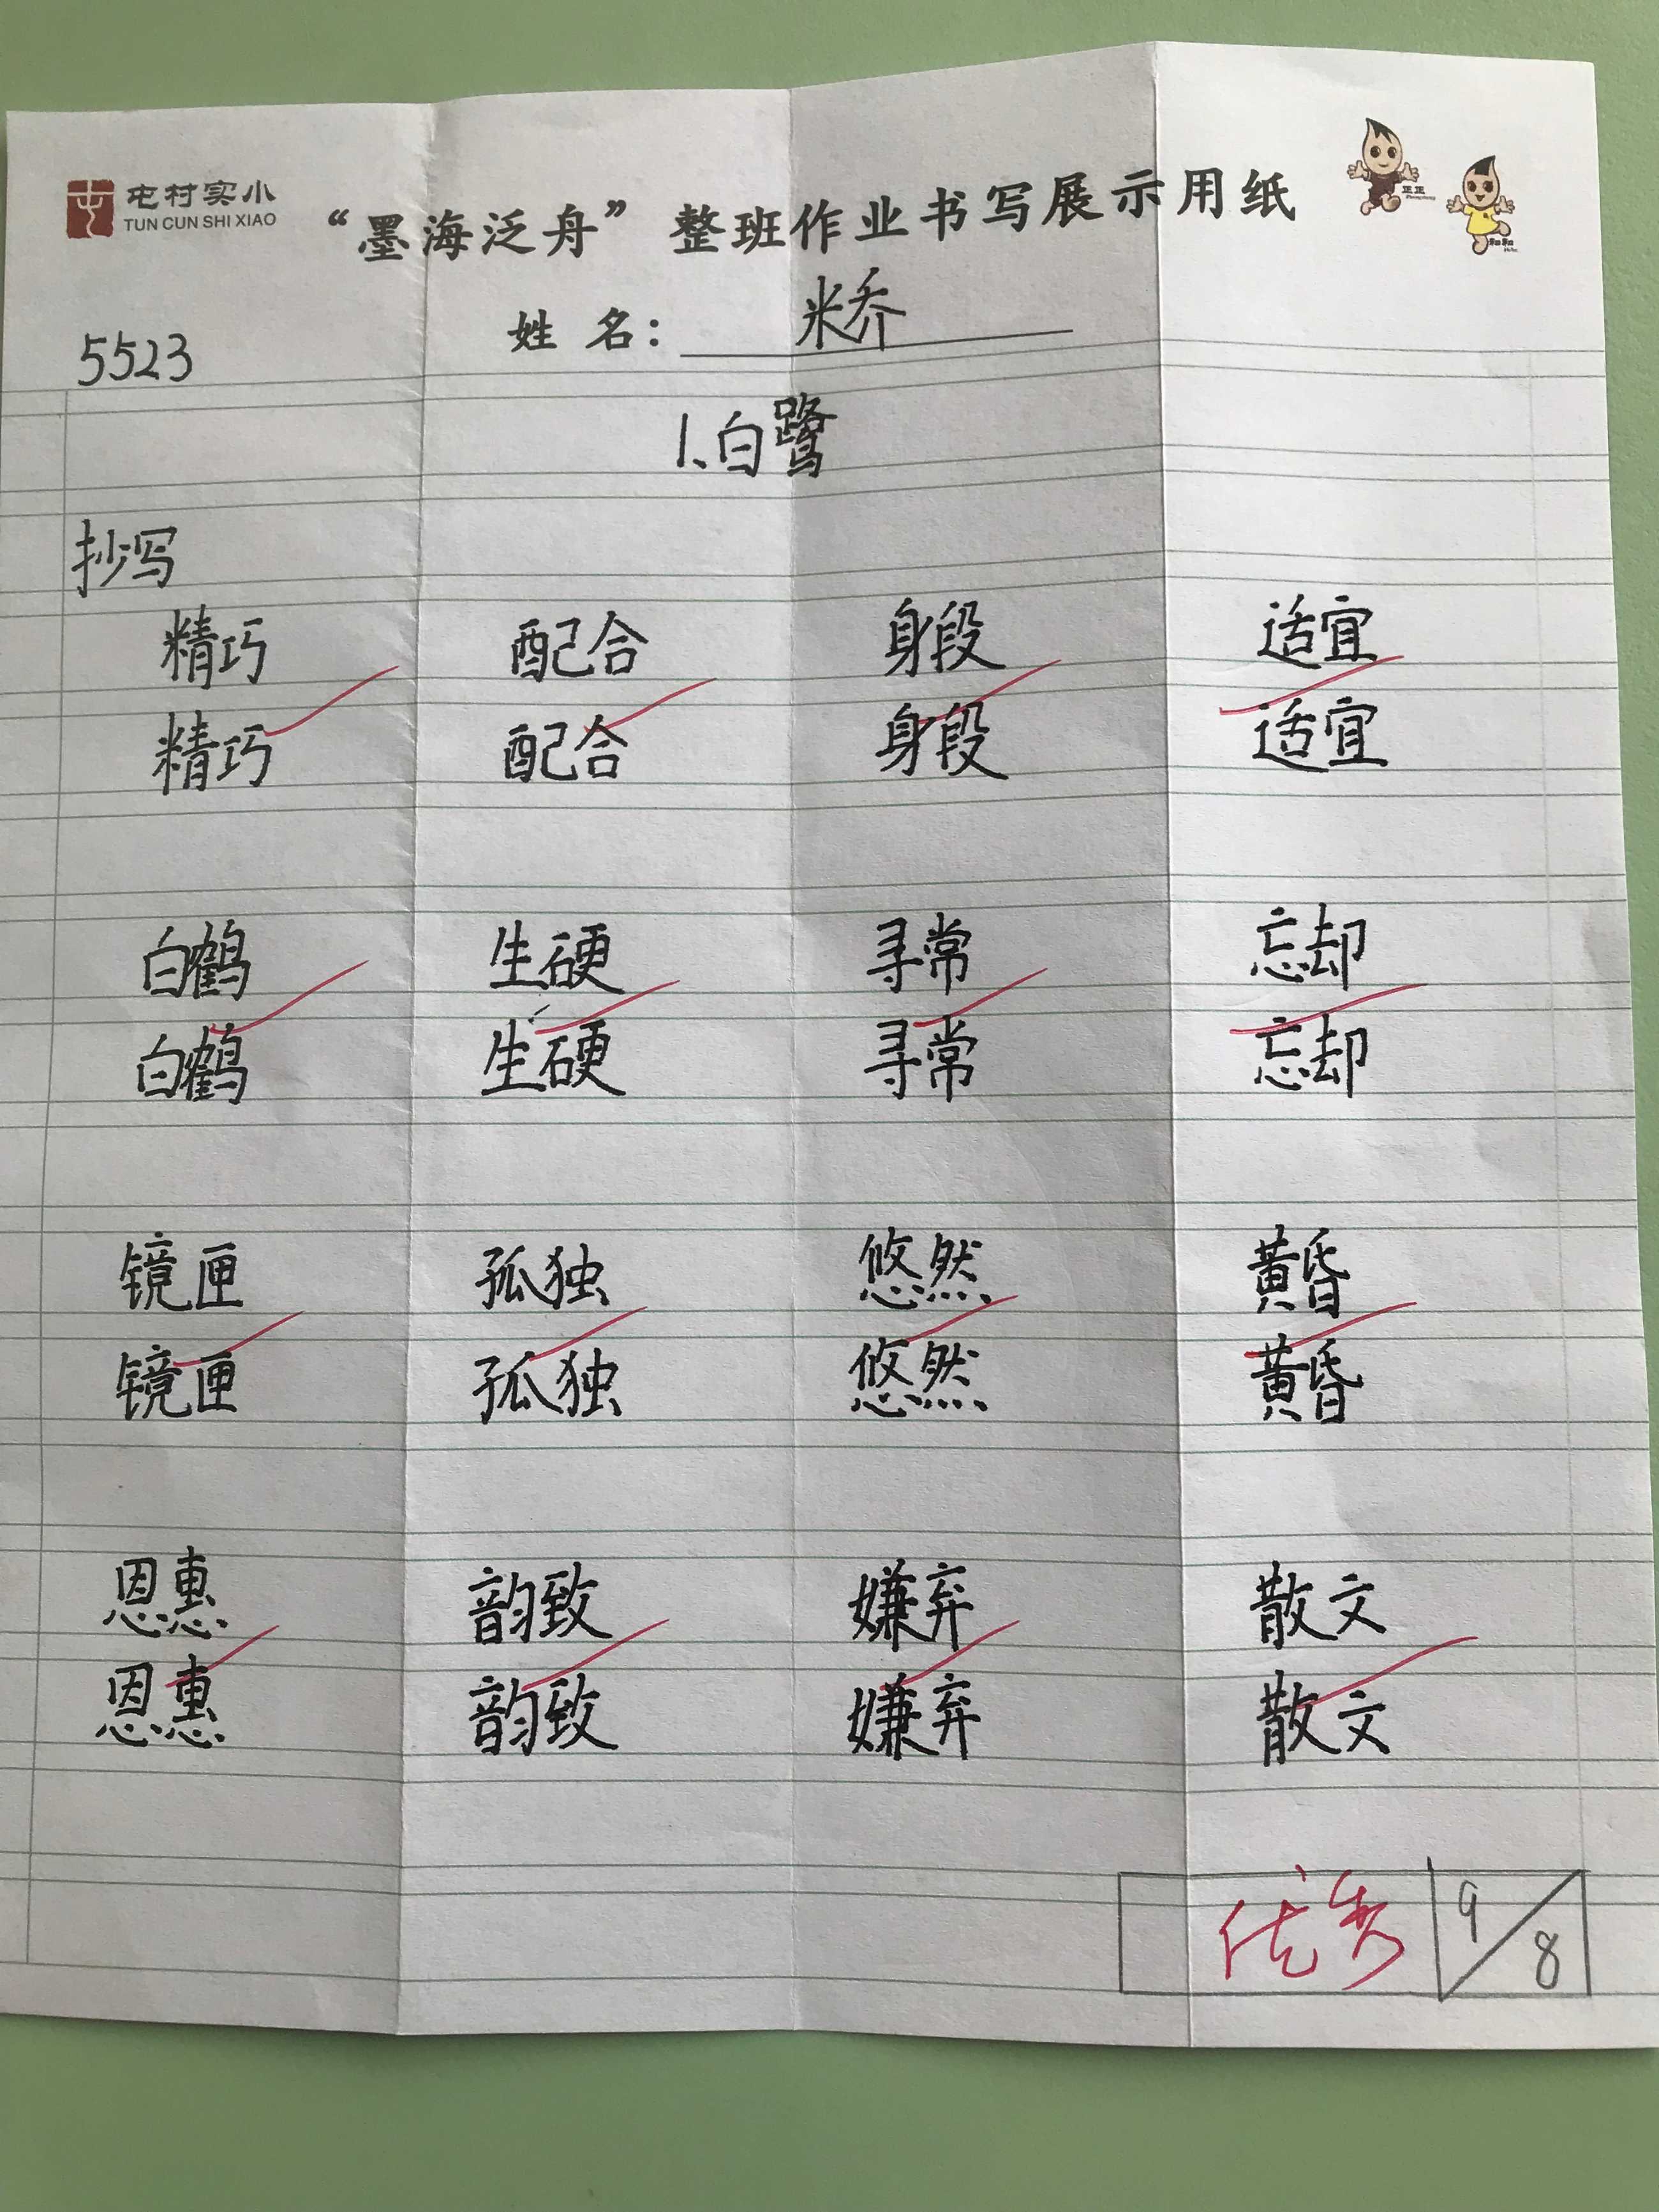 屯村实小
TUN CUN SHI XIAO
“墨海泛舟”整班作业书写展示用纸
正正
和和
姓名：米乔
5523
1、白鹭
抄写
精巧 配合 身段 适宜
精巧 配合 身段 适宜
白鹤 生硬 寻常 忘却
白鹤 生硬 寻常 忘却
镜匣 孤独 悠然 黄昏
镜匣 孤独 悠然 黄昏
恩惠 韵致 嫌弃 散文
恩惠 韵致 嫌弃 散文
优秀 9/8